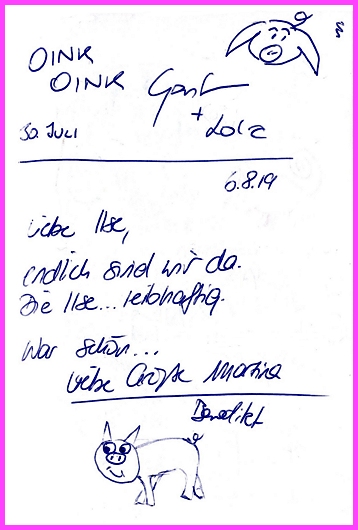 OINK
OINK
+ Lola
30. JULI
6.8.19
Liebe Ilse,
endlich sind wir da.
Die Ilse... leibhaftig.
War schön...
Liebe Grüße Martina
Benedikt